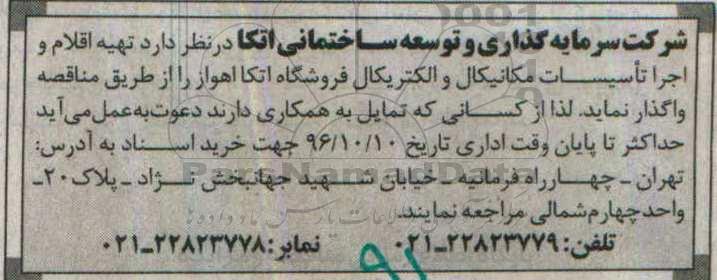 شرکت سرمایه گذاری و توسعه ساختمانی اتکا درنظر دارد تهیه اقلام و
اجرا تأسیسات مکانیکال و الکتریکال فروشگاه اتکا اهواز را از طریق مناقصه
واگذار نماید. لذا از کسانی که تمایل به همکاری دارند دعوت به عمل می آید
حداکثر تا پایان وقت اداری تاریخ ۹۶/۱۰/۱۰ جهت خرید اسناد به آدرس:
تهران - چهارراه فرمانیه - خیابان شهید جهانبخش نژاد - پلاک ۲۰-
واحد چهارم شمالی مراجعه نمایند.
تلفن: ۲۲۸۲۳۷۷۹-۰۲۱ نمابر: ۲۲۸۲۳۷۷۸-۰۲۱
ParsNamadData
۹۱